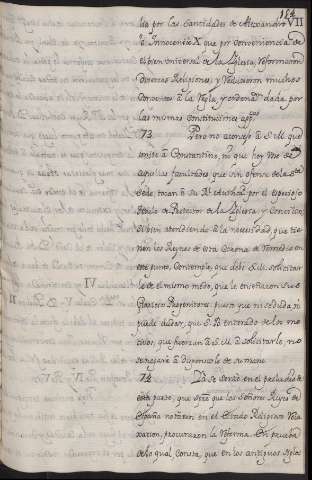 164
por las Santidades de Alexandro VII
è Innocencio X que por conveniencia de
el bien universal de la Yglesia, reformaron
Diversas Religiones, y reduxeron muchos
Conventos à la Regla, y orden dada por
las mismas Constituciones
73 Pero no aconsejo à S. M. que
imite à Constantino, ni que hoy use de
aquellas facultades que sin ofensa de la Sta
Sede, tocan à su Rl Autoridad por el especioso
titulo de Protector de la Yglesia, y Concilios;
si bien atendiendo à la necesidad, que tie-
nen los Reynos de esta Corona de remedio en
este punto, Contemplo, que debe S. M. solicitar-
le de el mismo modo, que le enseñaron sus
Gloriosos Progenitores, pues que ni se duda, ni
puede dudar, que S. B. enterado de los mo-
tivos, que fuerzan à S. M. à solicitarle, no
se negarà à disponerlo de su mano
74 Ya se sentò en el preludio de
esta parte, que siempre que los Señores Reyes de
España notaron en el Estado Religioso rela-
xacion, procuraron la reforma. En prueba
de lo qual, Consta, que en los antiguos siglos